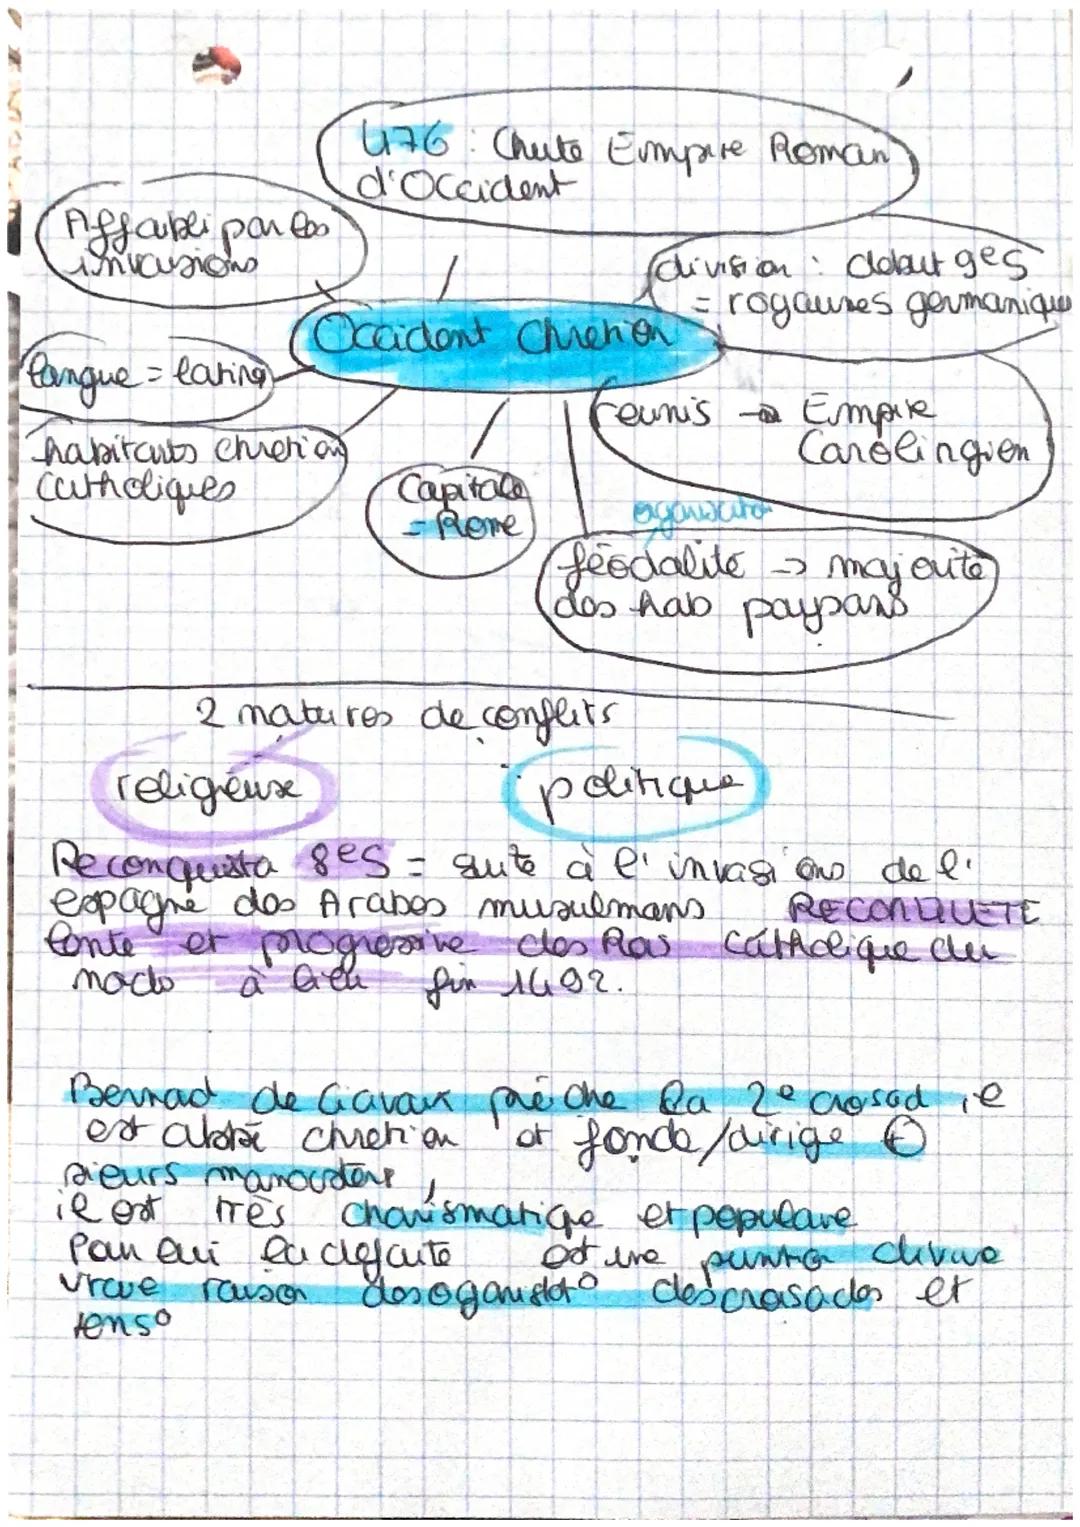 476 : Chute Empire Roman
d'Occident
Affaibli par les
invasions
division : debut 9eS
= royaumes germanique
Occident Chretien
langue = latine
reunis → Empire
Carolingien
habitants chretien
catholiques
Capitale
= Rome
organisato
féodalité → majorite
des hab paysans
2 natures de conflits
religieuse
politique
Reconquista 8eS = suite à l'invasions de l'
espagne des Arabes musulmans RECONQUETE
lente et progressive des Ras catholique du
à lieu fin 1492.
Bernad de Clavaux prêche la 2e crosad, il
est abbé chretien et fonde/dirige +
sieurs monastere,
il est très charismatique et populaire
Pour lui la defaite est une divine
vraie raison desoganisat° des crosades et
tens°